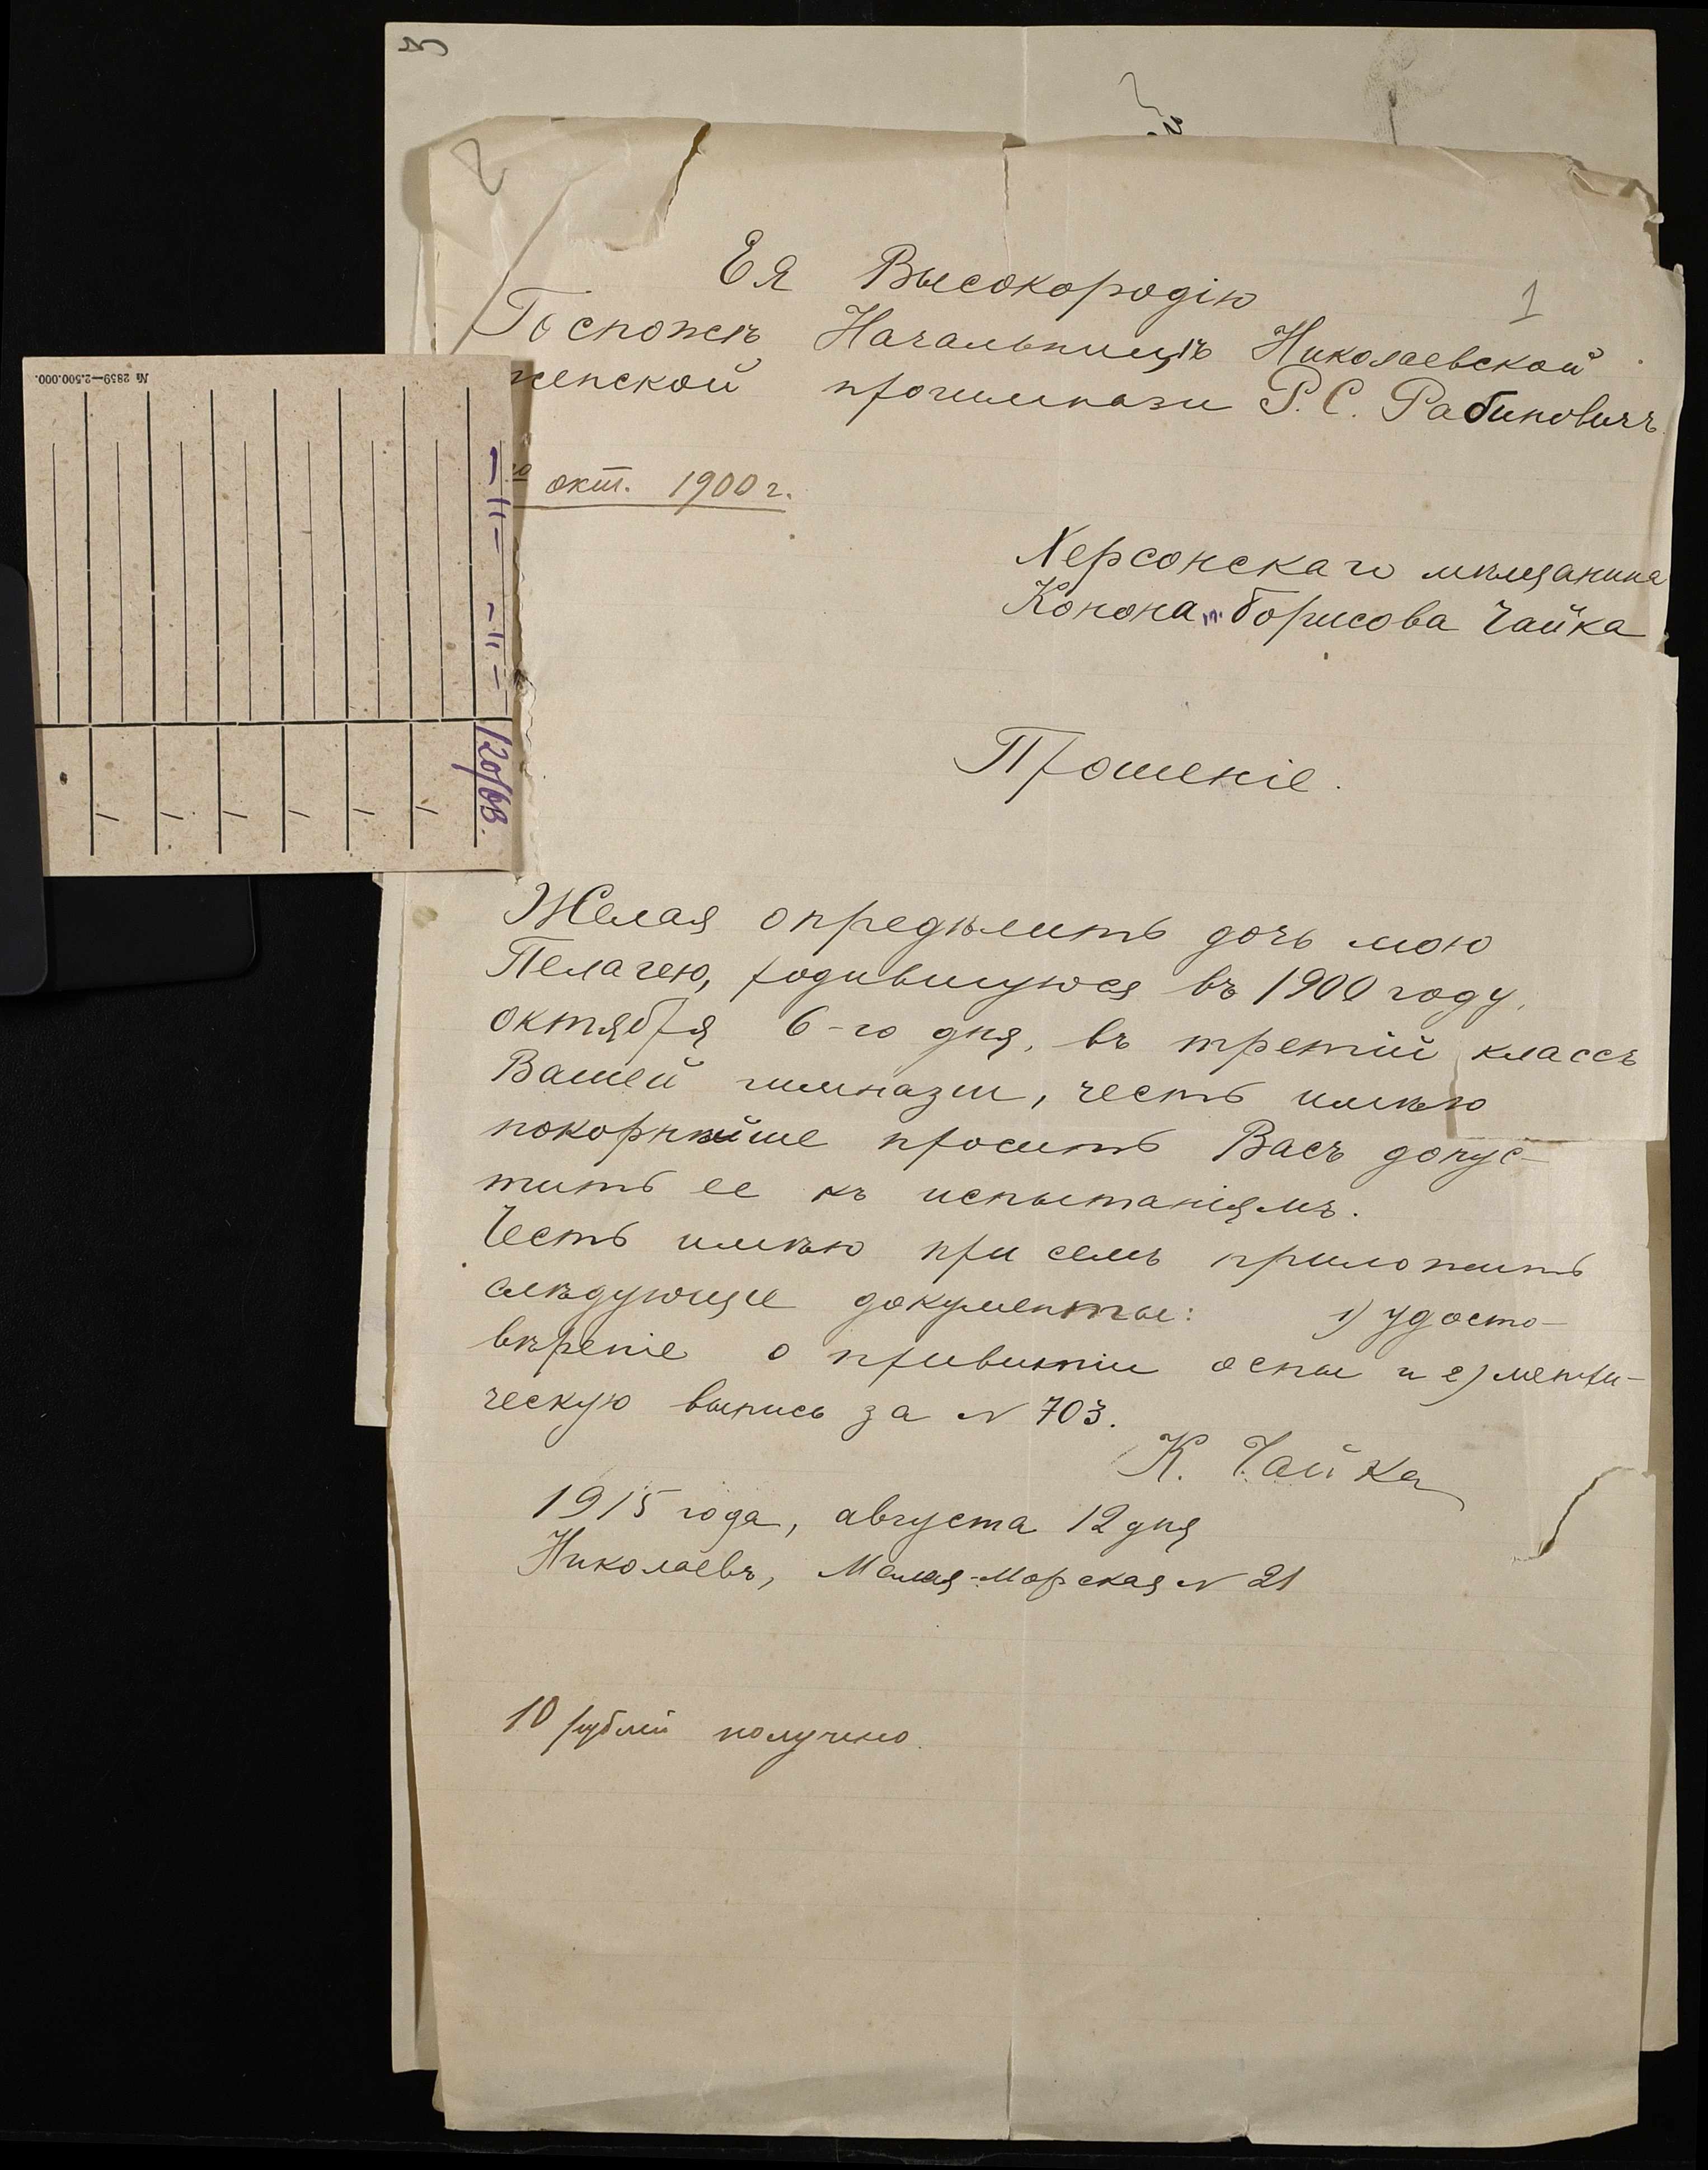 1
Ея Высокородію
Госпожѣ Начальницѣ Николаевской
женской прогимназіи Р. С. Рабиновичъ
окт. 1900 г.
Херсонскаго мѣщанина
Конона Борисова Чайка
Прошеніе.
Желая опредѣлить дочь мою
Пелагею, родившуюся въ 1900 году,
октября 6-го дня, въ третій классъ
Вашей гимназіи, честь имѣю
покорнѣйше просить Васъ допус-
тить ее къ испытаніямъ.
Честь имѣю при семъ приложить
слѣдующіе документы: 1) удосто-
вѣреніе о привитіи оспы и 2) метри-
ческую выпись за N 703.
К. Чайка
1915 года, августа 12 дня
Николаевъ, Малая-Морская N 21
10 рублей получено.
№ 2859—2.500.000.
—〃— —〃—